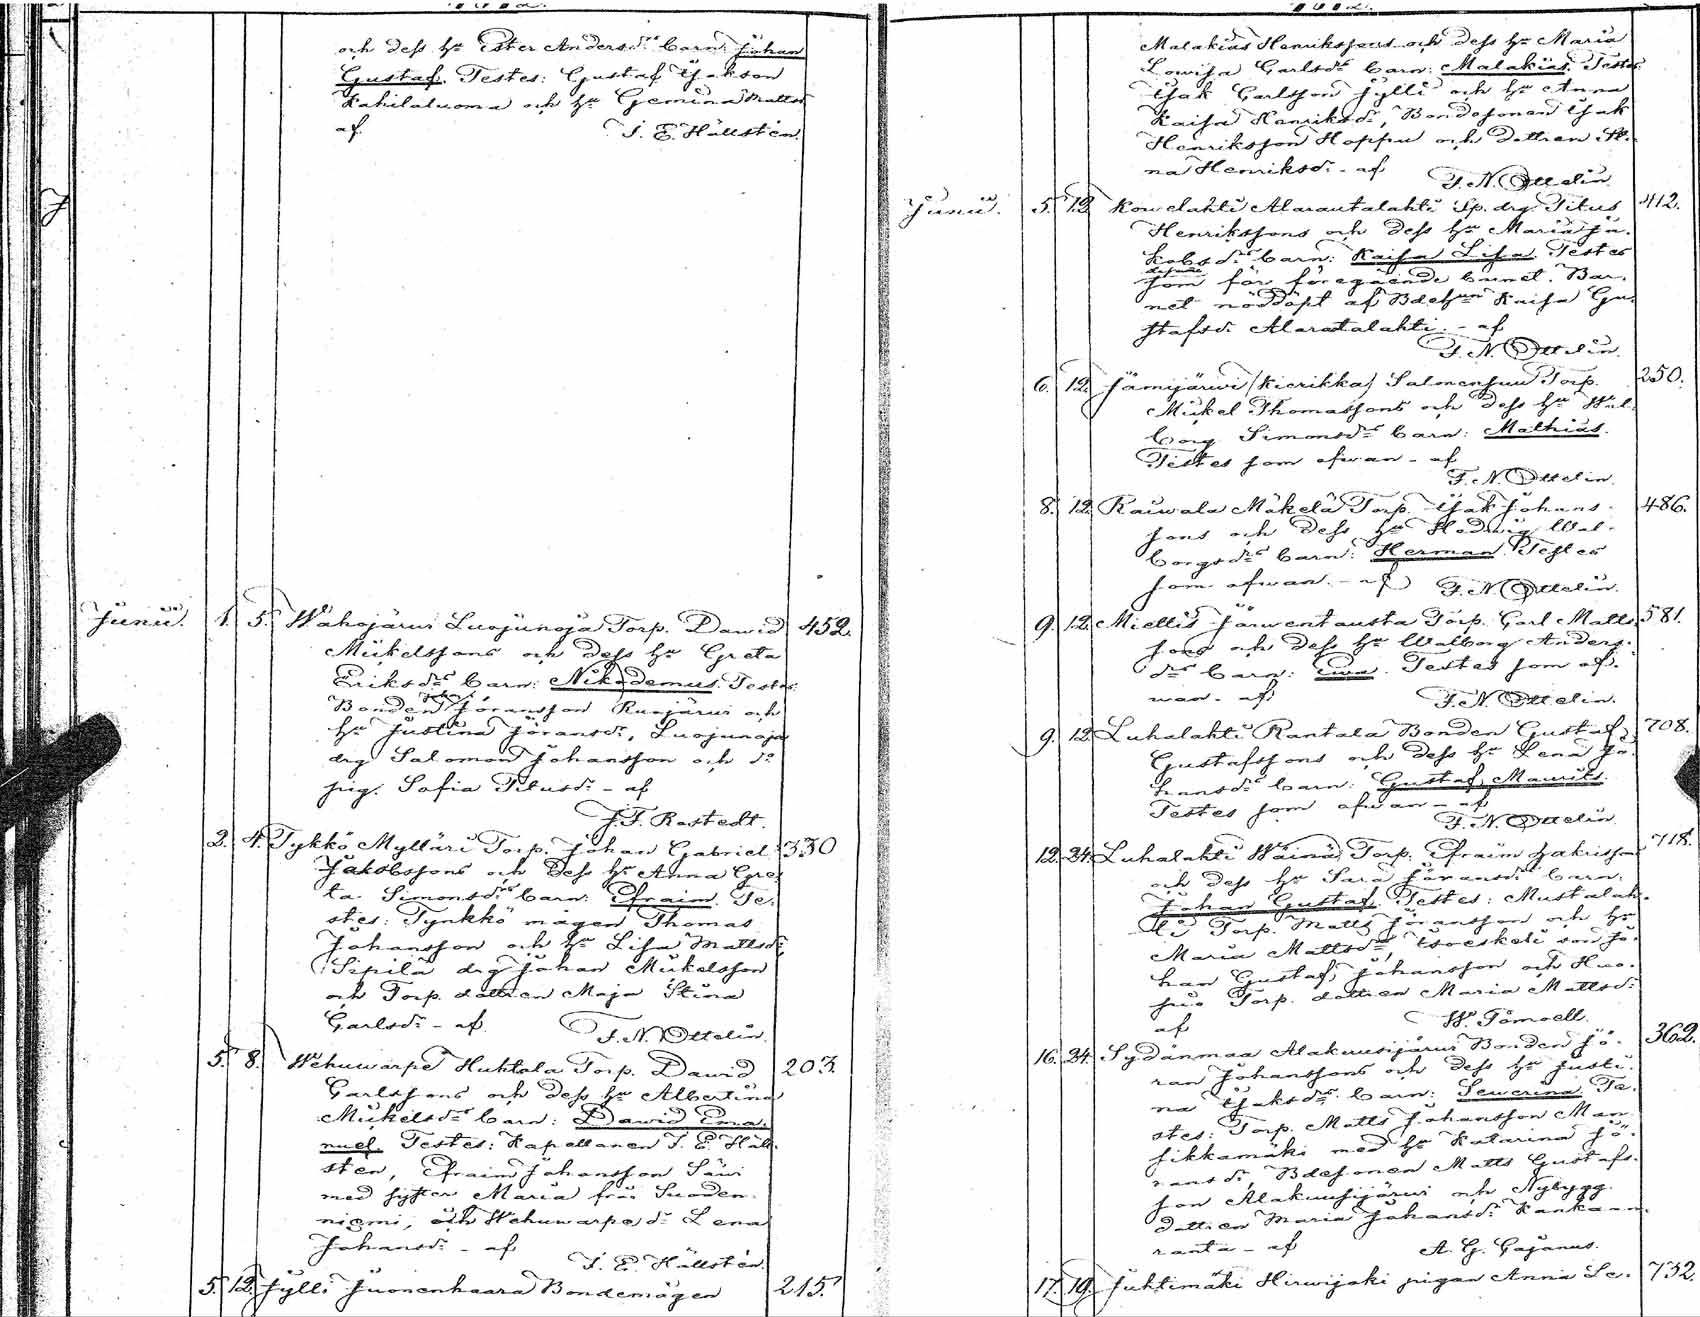 och dess hu Ester Andersdr barn: Johan
Gustaf. Testes: Gustaf Isakson
Kahilaluoma och hu Gemina Matts
af J. E. Hällstén.
Junii. 1. 5. Wahojärwi Luojunoja Torp. David 452.
Mickelssons och dess hu Greta
Eriksdrs barn: Nikodemus. Testes:
Bonden Johan Göransson Ruojärwi och
hu Justina Göransdr, Luojunoja
drg Salomon Johansson och do
pig. Sofia Titusdr - af
J. F. Rostedt.
2. 4. Tykkö Mylläri Torp. Johan Gabriel 330
Jakobssons och dess hu Anna Gre
ta Simonsdrs barn: Efraim. Te-
stes: Tynkkö mågen Thomas
Johansson och hu Lisa Mattsdr,
Sipilä drg Johan Mickelsson
och Torp. dottren Maja Stina
Carlsdr - af F. N. Ottelin.
5. 8. Wehuwarpe Huhtala Torp. David 203.
Carlssons och dess hu Albertina
Mickelsdrs barn: David Ema-
nuel. Testes: Kapellanen J. E. Häll-
stén, Efraim Johansson Säwi
med syster Maria från Suoden-
niemi, och Wehuwarpe dr Lena
Johansdr - af
J. E. Hällstén.
5. 12. Jylli Juonenhaara Bondemågen 215.
Malakias Henrikssons och dess hu Maria
Lowisa Carlsdrs barn: Malakias. Testes:
Isak Carlsson Jylli och hu Anna
Kaisa Henriksdr, Bondesonen Isak
Henriksson Hoppu och dottren Sti-
na Henriksdr - af
F. N. Ottelin.
Junii. 5. 12. Kowelahti Alarautalahti Sp. drg Titus 412.
Henrikssons och dess hu Maria Ja-
kobsdrs barn: Kaisa Lisa. Testes
som för föregående barnet. Bar-
net nöddöpt af Bdehun Kaisa Gu-
stafsdr Alaratalahti. - af
F. N. Ottelin.
6. 12. Jämijärwi (Kierikka) Salmensuu Torp. 250.
Mickel Thomassons och dess hu Wal-
borg Simonsdrs barn: Mathias.
Testes som ofwan - af
F. N. Ottelin.
8. 12. Raiwala Mäkelä Torp. Isak Johans- 486.
sons och dess hu Hedwig Wal-
borgsdrs barn: Herman. Testes
som ofwan. - af F. N. Ottelin.
9. 12. Miettis Järwentausta Torp. Carl Matts- 581.
sons och dess hu Walborg Anders-
drs barn: Ewa. Testes som of-
wan - af F. N. Ottelin.
9. 12. Luhalahti Rantala Bonden Gustaf 708.
Gustafssons och dess hu Lena Jo-
hansdrs barn: Gustaf Maurits.
Testes som ofwan - af
F. N. Ottelin.
12. 24. Luhalahti Wäinä Torp. Efraim Zakrisson 718.
och dess hu Sara Göransdrs barn:
Johan Gustaf. Testes: Mustalah-
ti Torp. Matts Göransson och hu
Maria Mattsdr, Isoeskeli son Jo-
han Gustaf Johansson och Huo-
Torp. dottren Maria Mattsdr
af W. Tömoell.
16. 24. Sydänmaa Alakuusijärwi Bonden Jö- 362.
ran Johanssons och dess hu Justi-
na Isaksdrs barn: Sewerina. Te-
stes: Torp. Matts Johansson Man
sikkamäki med hu Katarina Jö-
ransdr, Bdesonen Matts Gustafs-
son Alakuusijärwi och Nybygg.
dottren Maria Johansdr Kankaan
ranta - af A. G. Cajanus.
17. 19. Juhtimäki Hirwijoki pigan Anna Le- 732.